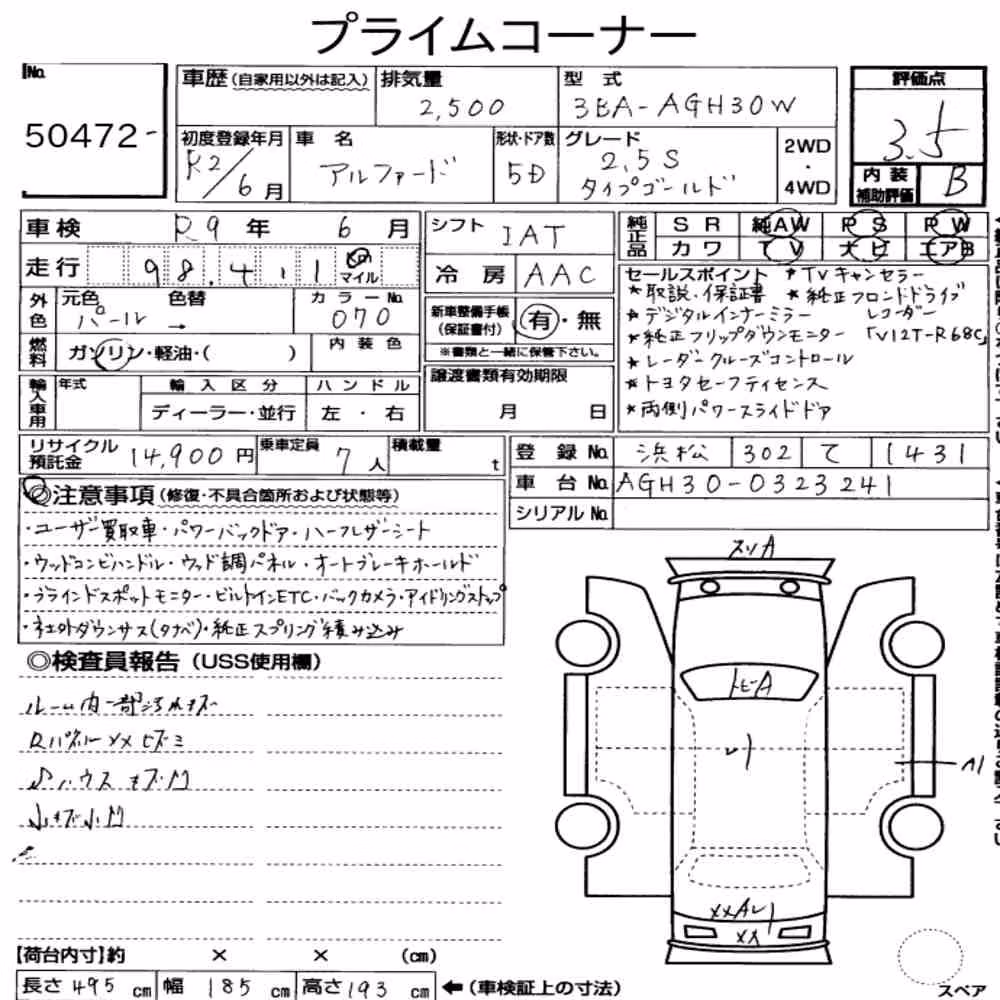 プライムコーナー
No.
50472-
車歴 (自家用以外は記入)
排気量
2,500
型 式
3BA-AGH30W
評価点
3.5
初度登録年月
R2/6月
車 名
アルファード
形状・ドア数
5D
グレード
2.5S
タイプゴールド
2WD
・
4WD
内 装
補助評価
B
車検 R9 年 6 月
シフト IAT
純正品
S R 純AW P S P W
カ ワ T V 大 ビ エアB
走行 98,411
マイル
冷 房 AAC
外色 元色 色替 カラーNo.
パール → 070
新車整備手帳
(保証書付)
有・無
※書類と一緒に保管下さい。
燃料 ガソリン・軽油・( )
内 装 色
セールスポイント ★TVキャンセラー
★取説・保証書 ★純正フロントドライブ
★デジタルインナーミラー レコーダー
★純正フリップダウンモニター「V12T-R68C」
★レーダークルーズコントロール
★トヨタセーフティセンス
★両側パワースライドドア
輸入車用 年式 輸 入 区 分 ハ ン ド ル
ディーラー・並行 左 ・ 右
譲渡書類有効期限
月 日
リサイクル
預託金
14,900円
乗車定員
7人
積載量
t
登 録 No. 浜松 302 て 1431
車 台 No. AGH30-0323241
シリアル No.
◎注意事項 (修復・不具合箇所および状態等)
・ユーザー買取車・パワーバックドア・ハーフレザーシート
・ウッドコンビハンドル・ウッド調パネル・オートブレーキホールド
・ブラインドスポットモニター・ビルトインETC・バックカメラ・アイドリングストップ
・社外ダウンサス(タナベ)・純正スプリング積み込み
◎検査員報告 (USS使用欄)
ルーム内一部汚れキズ
Rパネル XX ヒズミ
ハウス キズ凹
小キズ小凹
スリA
トビA
XX
【荷台内寸】約 × × (cm)
長さ 495 cm 幅 185 cm 高さ 193 cm ←(車検証上の寸法)
スペア